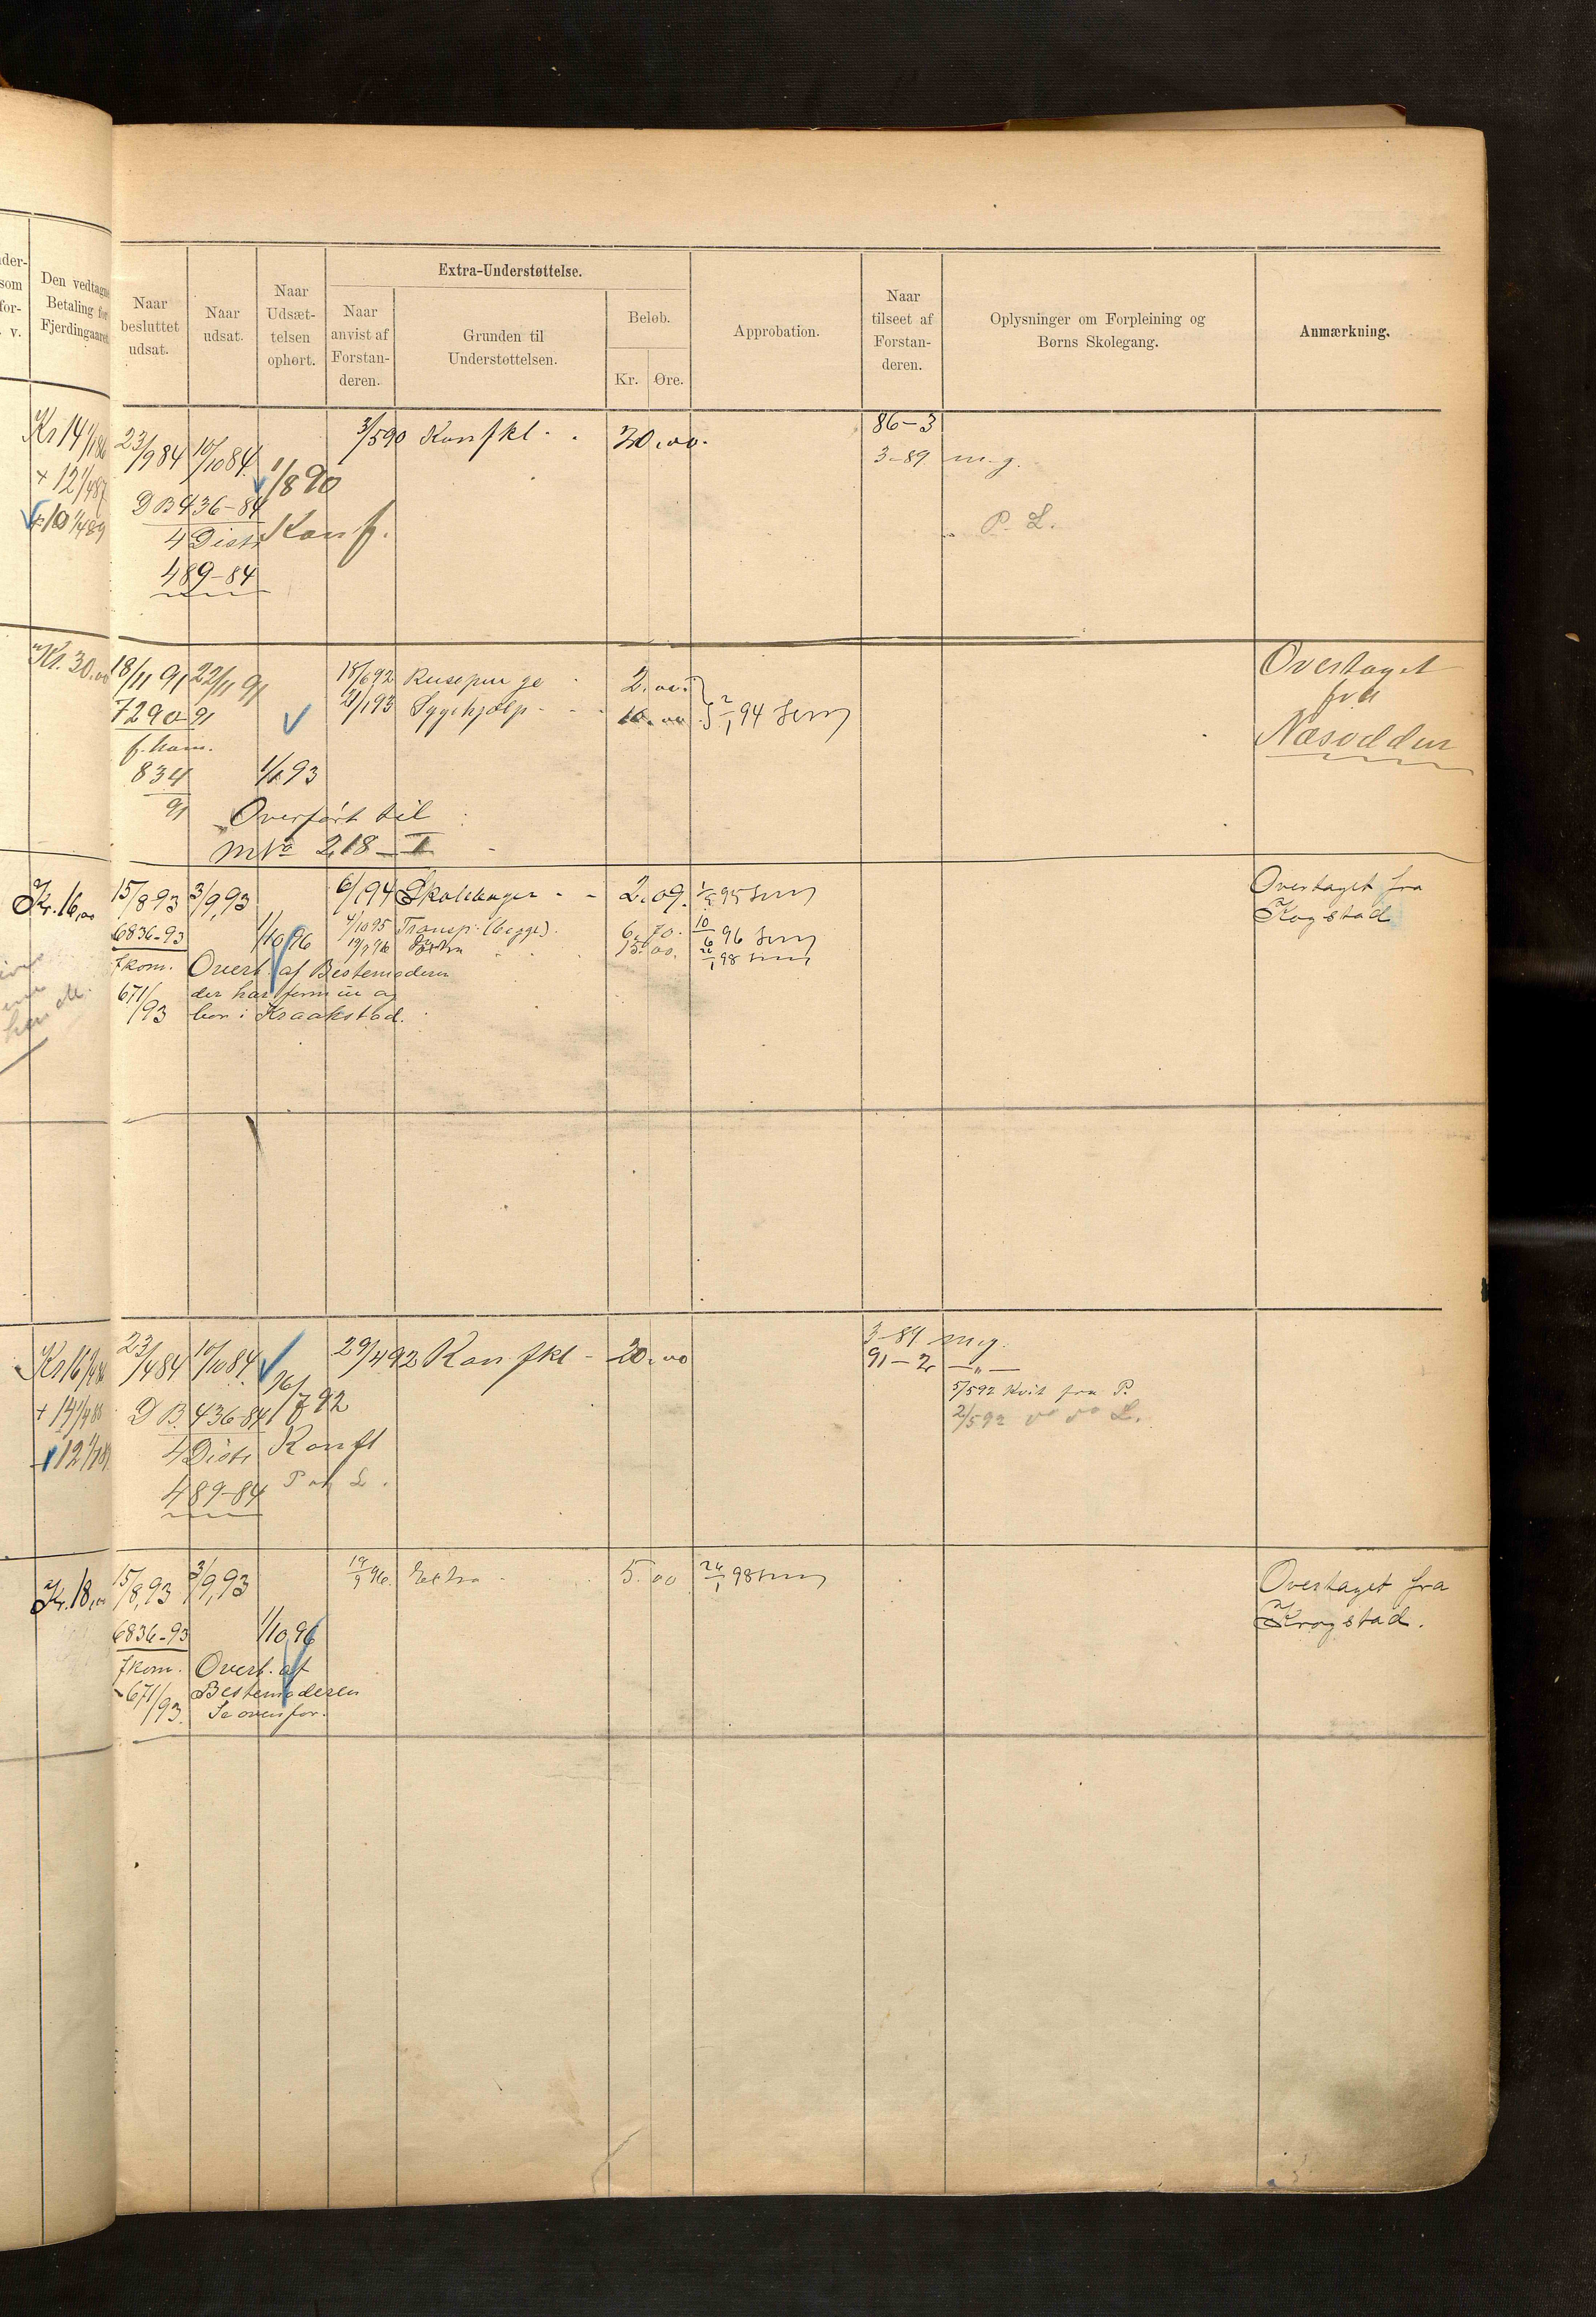 Den vedtagne
Betaling for
Fjerdingaaret
Naar
besluttet
udsat.
Naar
udsat.
Naar
Udsæt-
telsen
ophørt.
Extra-Understøttelse.
Naar
anvist af
Forstan-
deren.
Grunden til
Understøttelsen.
Beløb.
Kr. Øre.
Approbation.
Naar
tilseet af
Forstan-
deren.
Oplysninger om Forpleining og
Børns Skolegang.
Anmærkning.
Kr 14 1/1 86
+ 12 1/4 87
+ 10 1/4 89
23/9 84 10/10 84
3/5 90 Konfkl - . 30.00.
86-3
3-89 m.g.
1/8 90
D B 436-84
Konf.
4 Distr
489-84
P. L.
Kr. 30.00
18/11 91 22/11 91
7290-91
f. kom.
834
91
1/1 93
18/6 92 Reisepenge 2.00.
21/1 93 Sygehjælp 10.00. 2/1 94
Overført til
No 218-I
Overtaget
fra
Næsodden
Kr. 16,00
15/8 93 3/9,93
6/1 94 Skolebøger - - 2.09.
6836-93
1/10 96
4/10 95 Transp. (begge). 6.70. 10/6 96
Extra 15.00. 98
fkom. Overt. af Bestemoderen
671/93
bor i Kraakstad.
Overtaget fra
Kogstad
23/4 84 10/10 84
29/4 92 Konfkl - 20.00
3-89 m.g.
91-2 -"-
5/5 92 Kvit fra P.
2/5 92 do do L.
16/7 92
D B. 436-84
4 Distr Konfl
489-84 P og L.
Kr. 18,00
15/8,93 3/9,93
Extra 5.00 98
6836-93
1/10 96
fkom. Overt. af
671/93. Bestemoderen
Se ovenfor.
Overtaget fra
Krogstad.